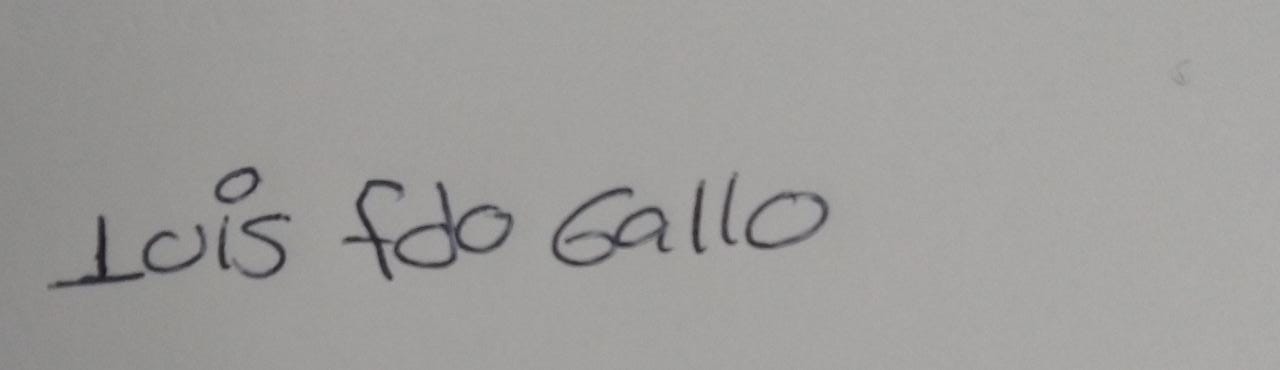 Luis fdo Gallo